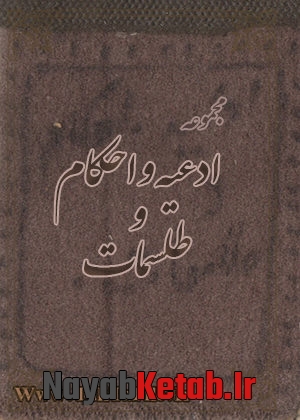 مجموعه
ادعیه و احکام
و
طلسمات
NayabKetab.Ir